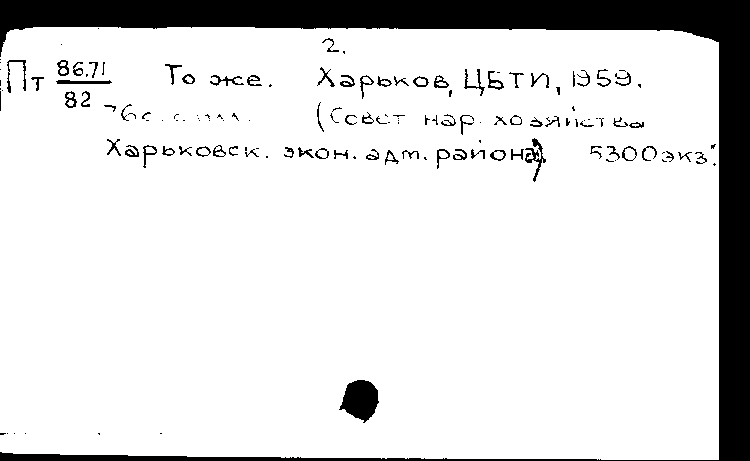 2.
Пт 86.71/82 То же. Харьков, ЦБТИ, 1959.
с. с илл. (Совет нар. хозяйства
Харьковск. экон. адм. района). 5300 экз.